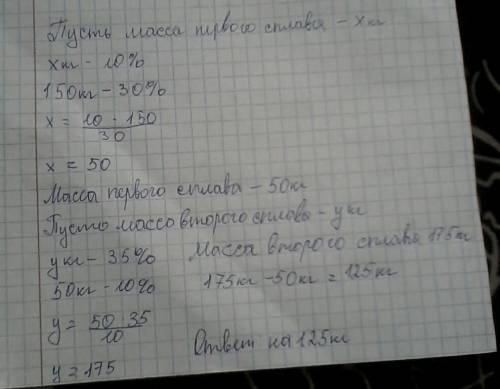 Пусть масса первого сплава - x кг
x кг - 10%
150 кг - 30%
x = 10 · 150 / 30
x = 50
Масса первого сплава - 50 кг
Пусть масса второго сплава - y кг
y кг - 35%
50 кг - 10%
y = 50 · 35 / 10
y = 175
Масса второго сплава 175 кг
175 кг - 50 кг = 125 кг
Ответ на 125 кг